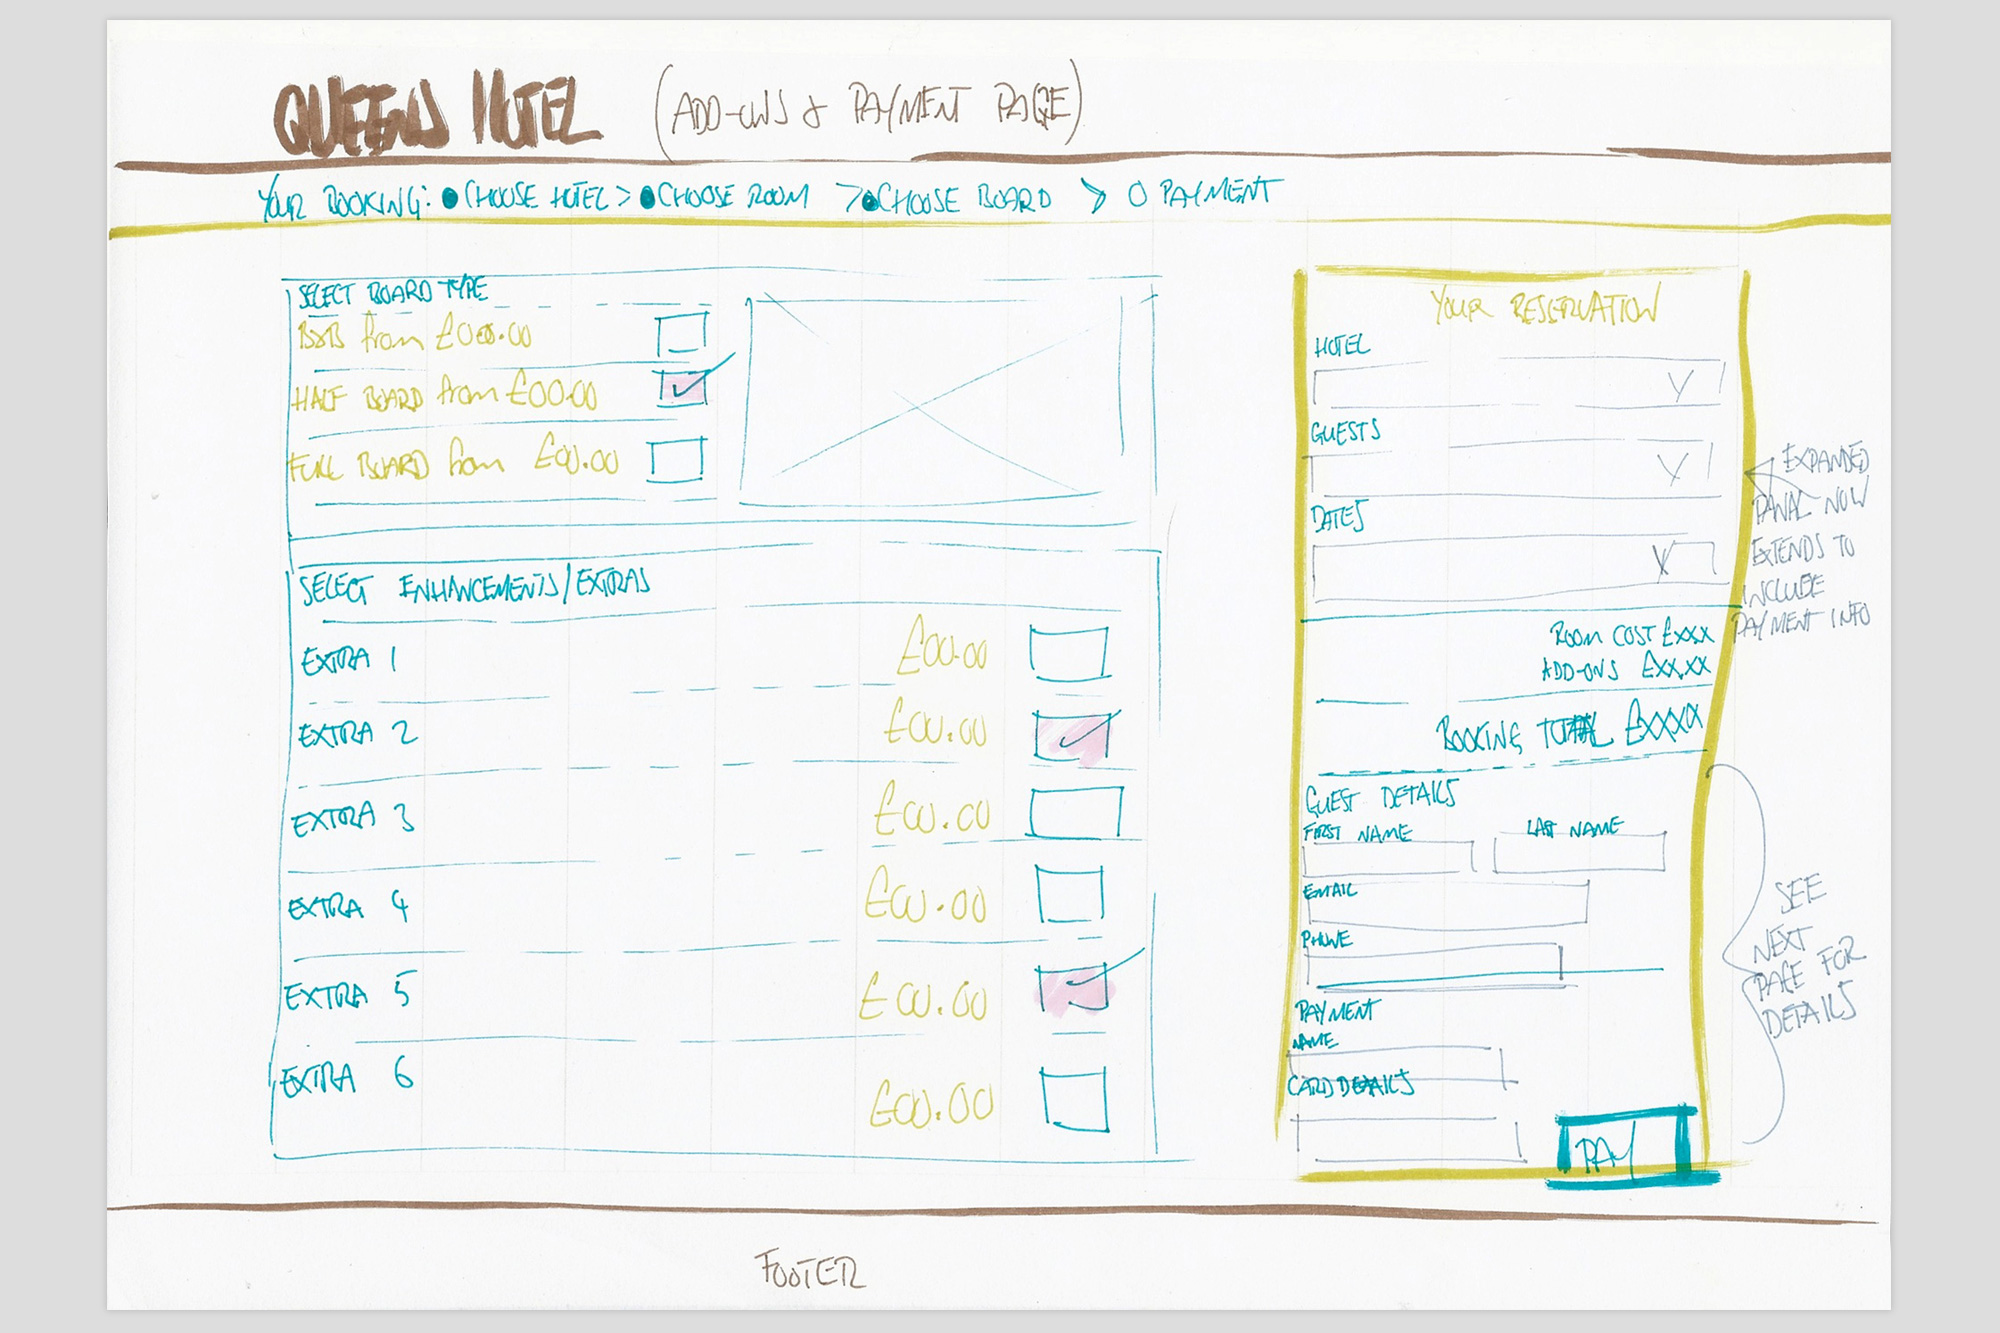 QUEENS HOTEL (ADD-ONS & PAYMENT PAGE)
YOUR BOOKING: CHOOSE HOTEL > CHOOSE ROOM > CHOOSE BOARD > O PAYMENT
SELECT BOARD TYPE
B&B from £000.00
HALF BOARD from £00.00
FULL BOARD from £00.00
SELECT ENHANCEMENTS/EXTRAS
EXTRA 1 £00.00
EXTRA 2 £00.00
EXTRA 3 £00.00
EXTRA 4 £00.00
EXTRA 5 £00.00
EXTRA 6 £00.00
YOUR RESERVATION
HOTEL
GUESTS
DATES
ROOM COST £XXX
ADD-ONS £XX.XX
BOOKING TOTAL £XXXX
GUEST DETAILS
FIRST NAME LAST NAME
EMAIL
PHONE
PAYMENT
NAME
CARD DETAILS
PAY
EXPANDED
PANAL NOW
EXTENDS TO
INCLUDE
PAYMENT INFO
SEE
NEXT
PAGE FOR
DETAILS
FOOTER